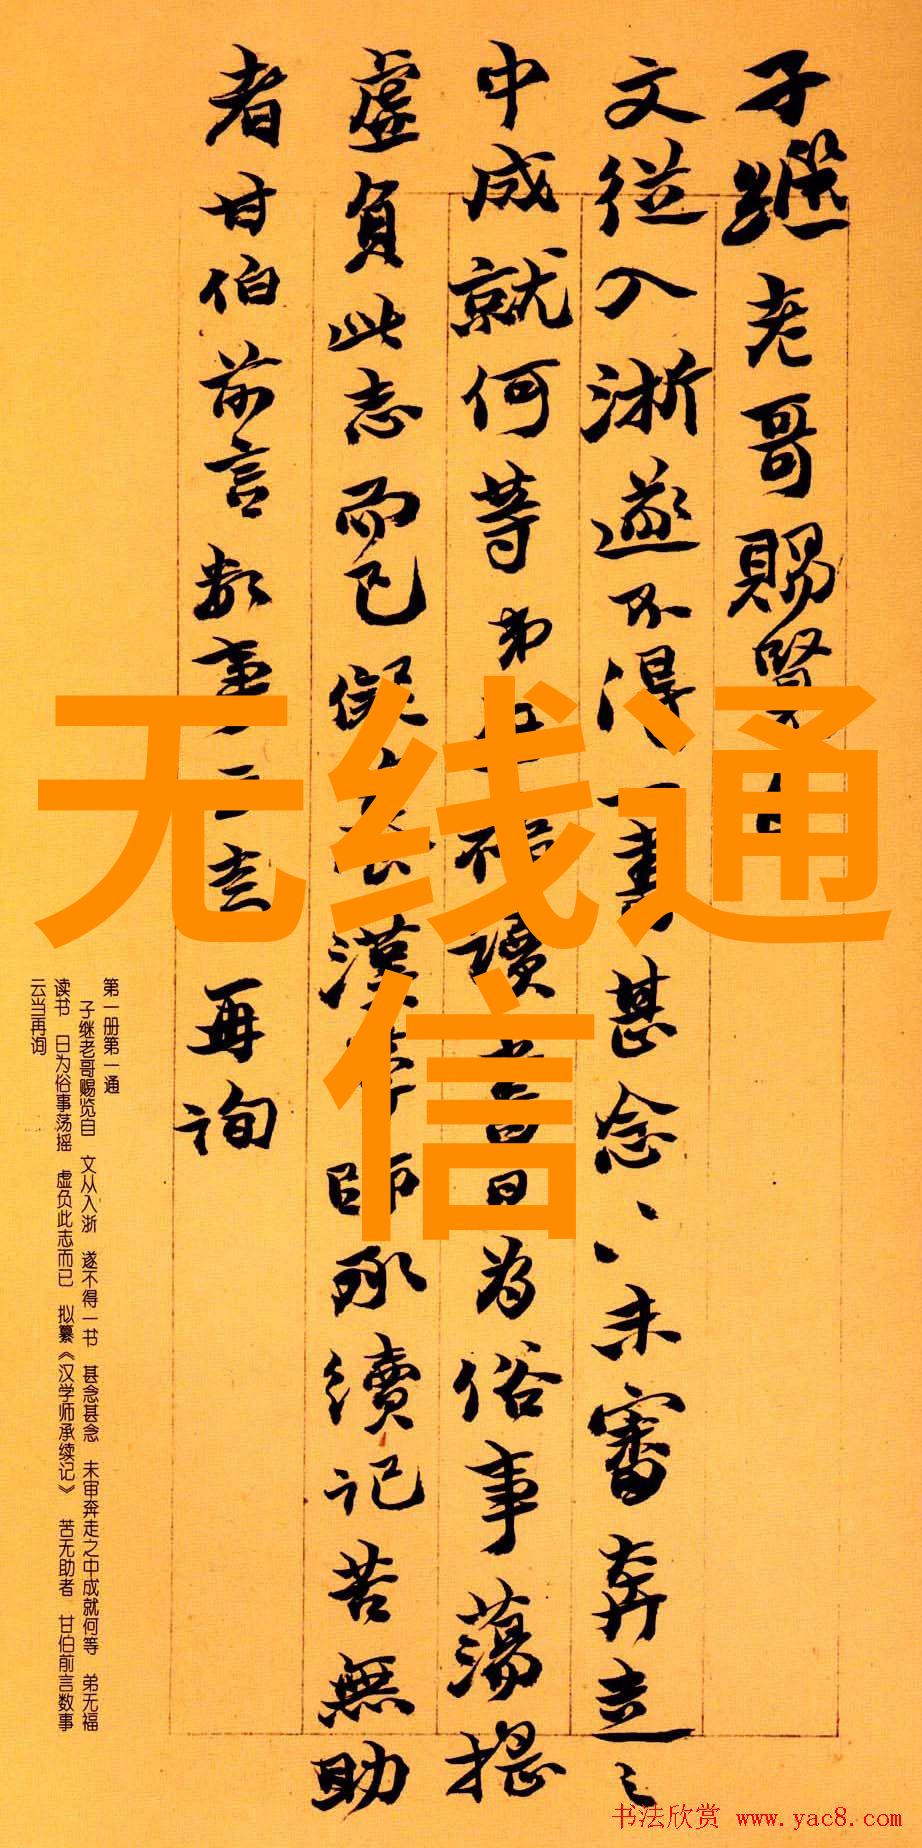 子繼老哥賜覽自
文從入浙遂不得一書甚念〻未審奔走之
中成就何等弟無福讀書日為俗事蕩搖
虛負此志而已擬纂漢學師承續記苦無助
者甘伯前言數事云云去再詢
无线通
信
第一册第一通
子继老哥赐览自 文从入浙 遂不得一书 甚念甚念 未审奔走之中成就何等 弟无福
读书 日为俗事荡摇 虚负此志而已 拟纂《汉学师承续记》 苦无助者 甘伯前言数事
云当再询
书法欣赏 www.yac8.com